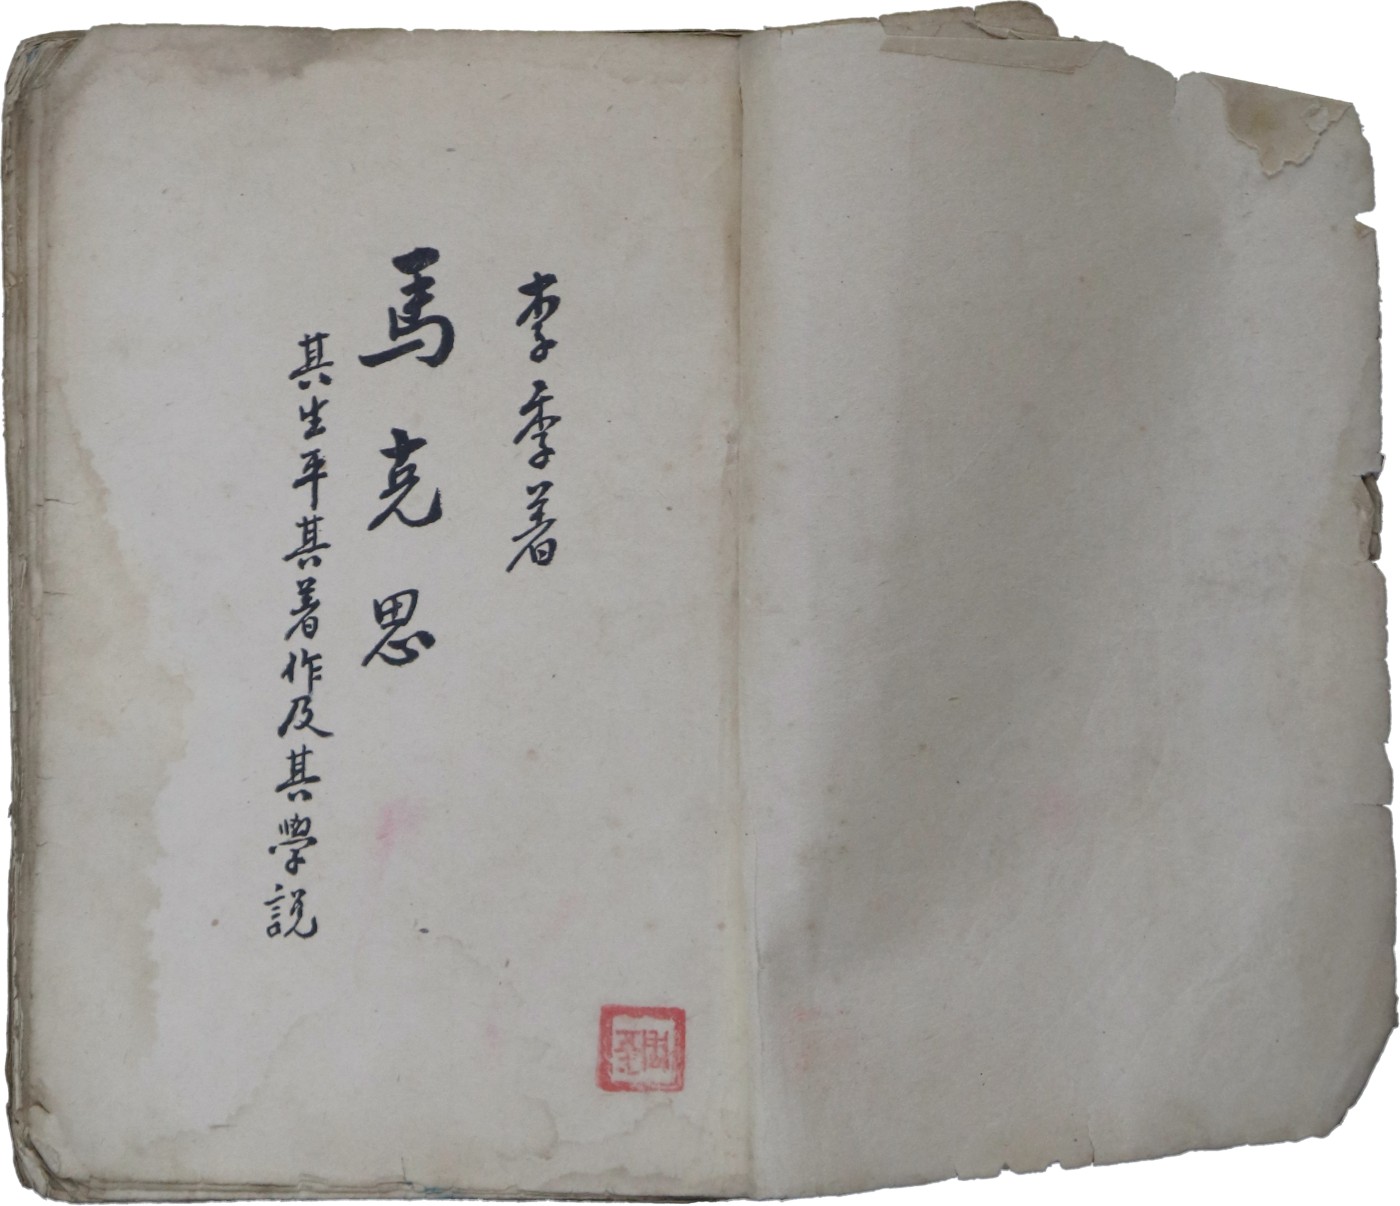 李季著
馬克思
其生平其著作及其學說